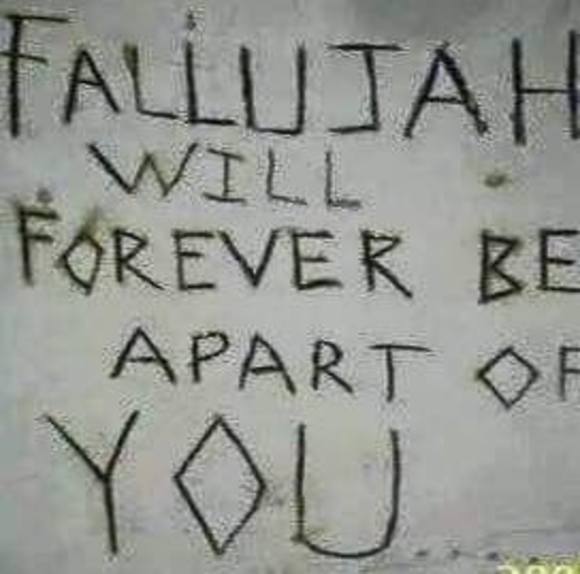 FALLUJAH
WILL
FOREVER BE
APART OF
YOU......